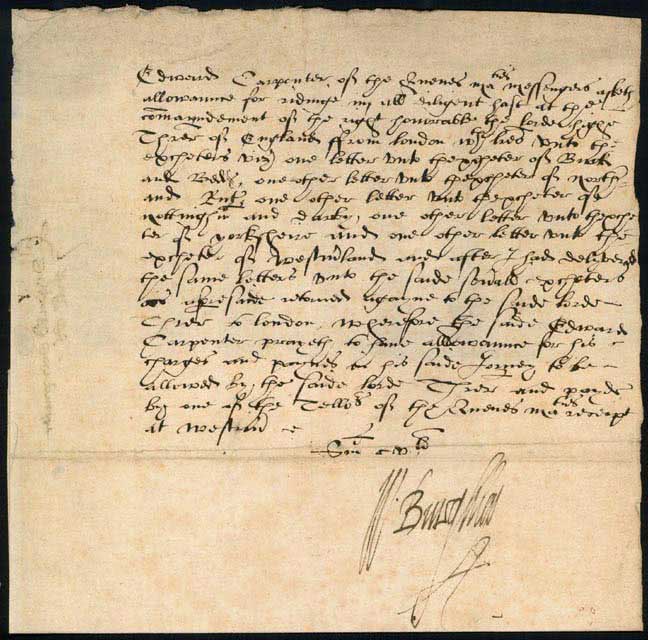 Edward Carpenter of the Quenes maties messengers asketh
allowaunce for ridinge in all diligent hast at the
commaundement of the right honorable the lorde highe
Threr of England ffrom london wth lres vnto the
excheters viz one letter vnto thexcheter of Buck
and Bedd, one other letter vnto thexcheter of North
and Rutl one other letter vnto thexcheter of
nottingh and darby, one other letter vnto thexche
ter of yorksheire and one other letter vnto the
excheter of Westmland and after I had delivered
the same letters vnto the saide seuall excheters
as aforesaide retorned agayne to the saide lorde
Threr to london. Wherefore the saide Edward
Carpenter prayeth to haue allowaunce for his
charges and paynes in his saide Jorney to be
allowed by the saide lorde Threr and payde
by one of the Tellers of the Quenes maties receipt
at westm
Sm
W. Burghley